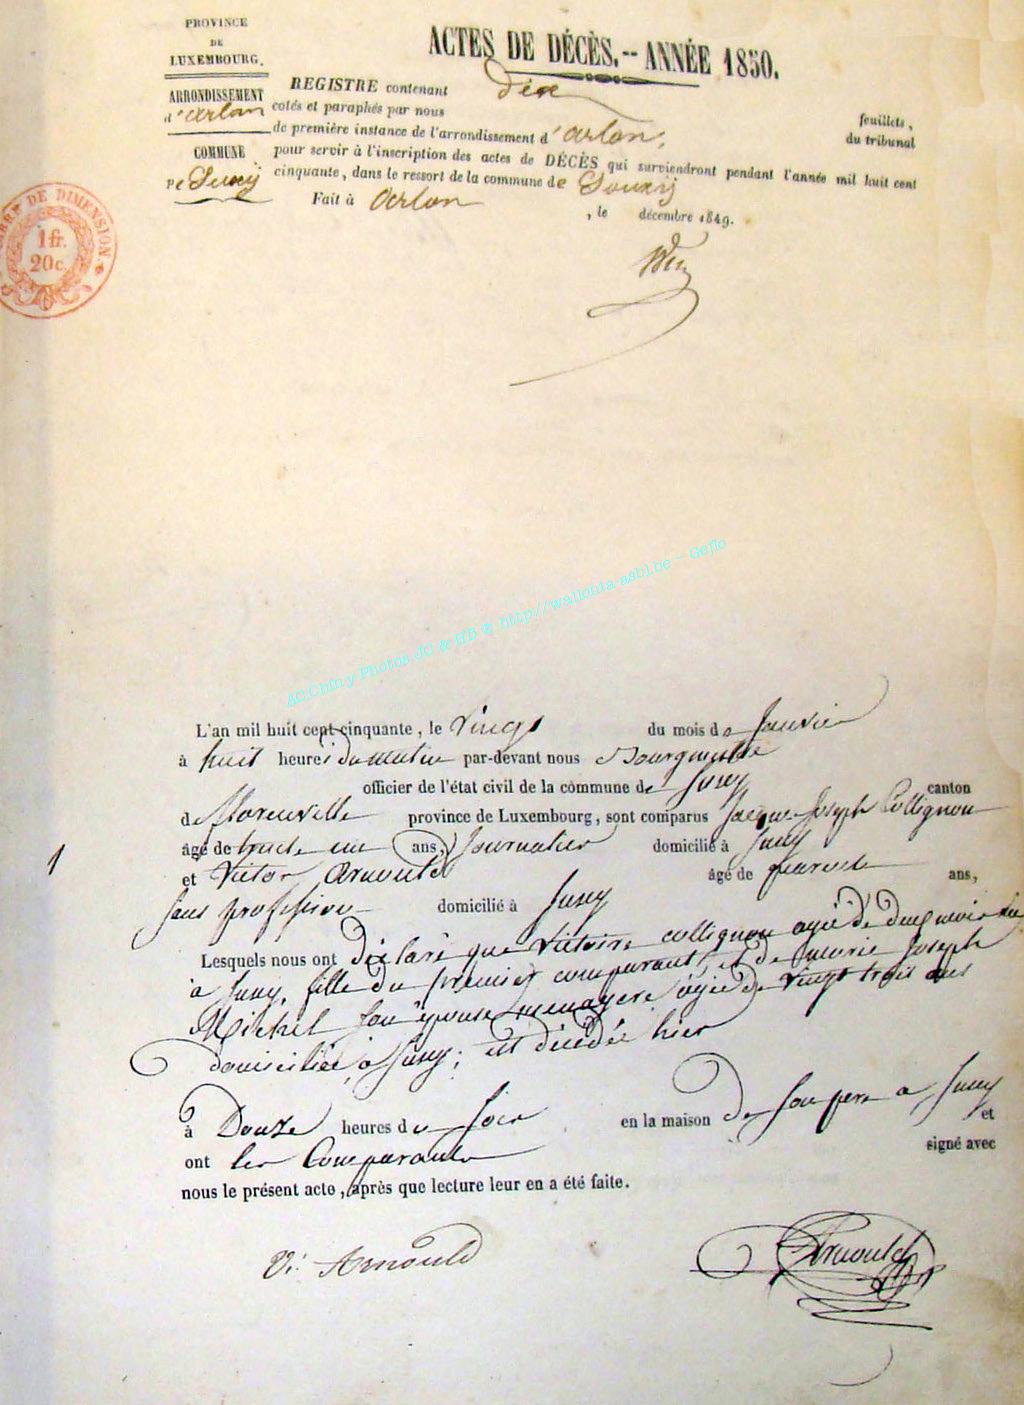 PROVINCE
DE
LUXEMBOURG.
ARRONDISSEMENT
d'Arlon
COMMUNE
De Suxy
TIMBRE DE DIMENSION
1 fr.
20 c.
ACTES DE DÉCÈS. -- ANNÉE 1850.
REGISTRE contenant dix feuillets,
cotés et paraphés par nous du tribunal
de première instance de l'arrondissement d'Arlon,
pour servir à l'inscription des actes de DÉCÈS qui surviendront pendant l'année mil huit cent
cinquante, dans le ressort de la commune de Souxy
Fait à Arlon , le décembre 1849.
AC Chiny Photos JC & HB © http://wallonia-asbl.be - Geflo
1
L'an mil huit cent cinquante, le Vingt du mois de Janvier
à huit heures du matin par-devant nous
officier de l'état civil de la commune de Suxy canton
de Florenville province de Luxembourg, sont comparus Jacque Joseph Collignon
âgé de trente un ans, Journalier domicilié à Suxy
et Victor Arnould âgé de quarente ans,
sans profession domicilié à Suxy
Lesquels nous ont déclaré que Victoire collignon agée de mois née
à Suxy, fille du premier comparant, et de marie Joseph
Michel son épouse menagere agée de vingt trois ans
domiciliée à Suxy; est décédée hier
à Douze heures du soir en la maison de son pere a Suxy et
ont les Comparants signé avec
nous le présent acte, après que lecture leur en a été faite.
V: Arnould
Arnould